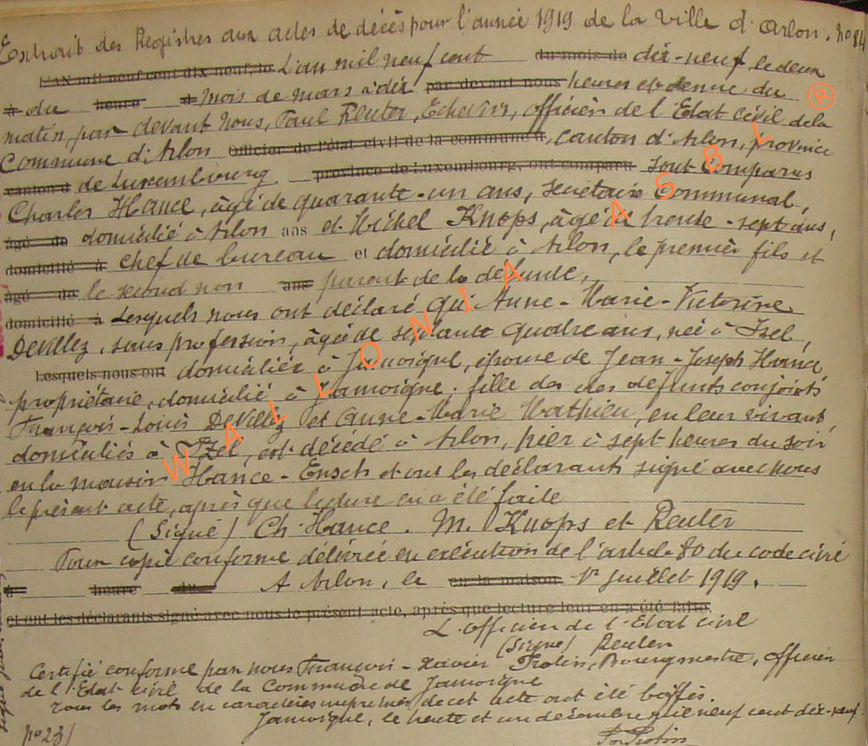 Extrait des Registres aux actes de décès pour l'année 1919 de la Ville d'Arlon. no 84
L'an mil neuf cent dix neuf, le L'an mil neuf cent du mois de dix-neuf, le deux
à du heure d mois de mars à dix par devant nous heures et demie, du
matin, par devant nous, Paul Reuter, Echevin, officier de l'Etat Civil de la
Commune d'Arlon Officier de l'état civil de la commune d, canton d'Arlon, province
canton d de Luxembourg province de Luxembourg, ont comparu sont comparus
Charles Hance, âgé de quarante-un ans, secrétaire Communal,
âgé de domicilié à Arlon ans et Michel Knops, âgé de trente-sept ans,
domicilié à chef de bureau et domicilié à Arlon, le premier fils et
âgé de le second non ans parent de la defunte,
domicilié à Lesquels nous ont déclaré qu'Anne-Marie-Victorine
Devillez, sans profession, âgée de septante quatre ans, née à Izel,
Lesquels nous ont domiciliée à Jamoigne, épouse de Jean-Joseph Hance
propriétaire, domicilié à Jamoigne; fille des défunts conjoints
François-Louis Devillez et Anne-Marie Mathieu, en leur vivant
domiciliés à Izel, est décédé à Arlon, hier à sept heures du soir
en la maison Hance-Ensch et ont les déclarants signé avec nous
le présent acte, après que lecture en a été faite
(Signé) Ch. Hance. M. Knops et Reuter
Pour copie conforme délivrée en exécution de l'article 80 du code civil
heure du A Arlon, le en la maison 1er juillet 1919.
et ont les déclarants signé avec nous le présent acte, après que lecture leur en a été faite.
L'officier de l'Etat Civil
(Signé) Reuter
Certifié conforme par nous François-Xavier Bourgmestre, officier
de l'Etat civil de la Commune de Jamoigne
Tous les mots en caractères imprimés de cet acte ont été biffés.
Jamoigne, le trente et un décembre mil neuf cent dix-neuf.
no 23
WALLONIA ASBL ®